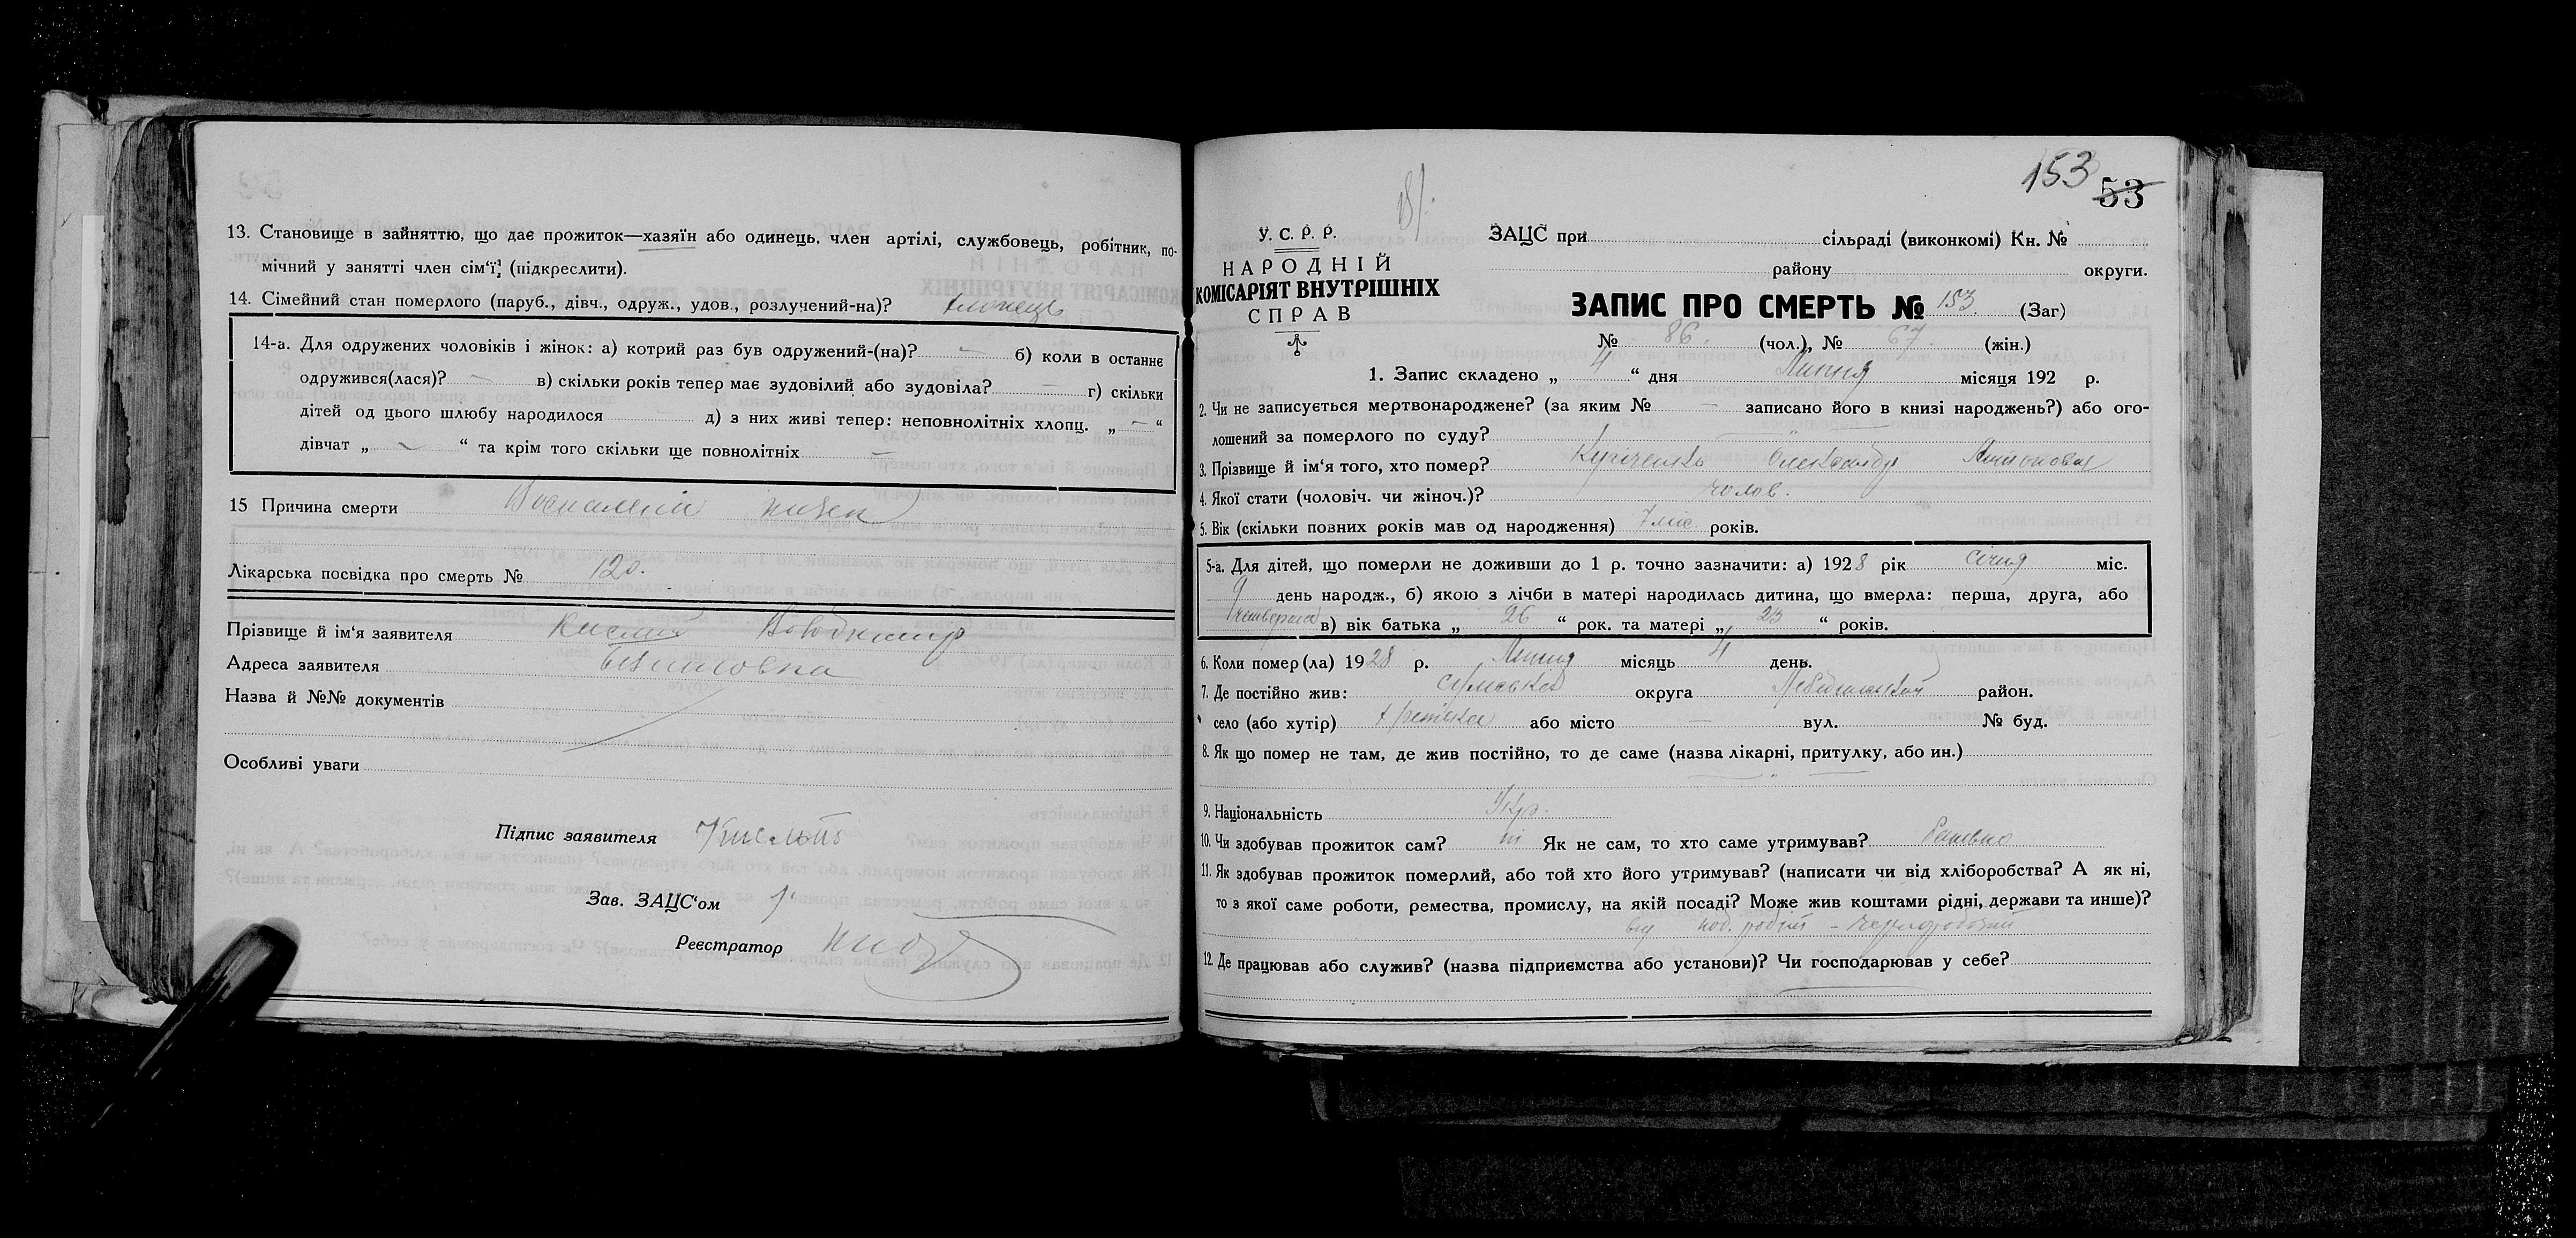 13. Становище в зайняттю, що дає прожиток—хазяїн або одинець, член артілі, службовець, робітник, по-
мічний у занятті член сім‘ї, (підкреслити).
14. Сімейний стан померлого (паруб., дівч., одруж., удов., розлучений-на)? хлопець
14-а. Для одружених чоловіків і жінок: а) котрий раз був одружений-(на)? — б) коли в останнє
одружився(лася)? — в) скільки років тепер має зудовілий або зудовіла? — г) скільки
дітей од цього шлюбу народилося д) з них живі тепер: неповнолітніх хлопц. „ — “
дівчат „ — “ та крім того скільки ще повнолітніх —
15 Причина смерти
Лікарська посвідка про смерть № 120.
Прізвище й ім‘я заявителя Володимир
Адреса заявителя
Назва й №№ документів
Особливі уваги
Підпис заявителя
Зав. ЗАЦС‘ом
Реєстратор
153
53
У. С. Р. Р.
НАРОДНІЙ
КОМІСАРІЯТ ВНУТРІШНІХ
СПРАВ
ЗАЦС при сільраді (виконкомі) Кн. №
району округи.
ЗАПИС ПРО СМЕРТЬ № 153. (Заг)
№ 86. (чол.), № 67. (жін.)
1. Запис складено „ 4 “ дня Липня місяця 192 р.
2. Чи не записується мертвонароджене? (за яким № — записано його в книзі народжень?) або ого-
лошений за померлого по суду? — „ —
3. Прізвище й ім‘я того, хто помер? Олександр Антонович
4. Якої стати (чоловіч. чи жіноч.)? чолов.
5. Вік (скільки повних років мав од народження) 7 міс років.
5-а. Для дітей, що померли не доживши до 1 р. точно зазначити: а) 1928 рік січня міс.
9 день народж., б) якою з лічби в матері народилась дитина, що вмерла: перша, друга, або
четверта в) вік батька „ 26 “ рок. та матері „ 23 “ років.
6. Коли помер(ла) 1928 р. Липня місяць 4 день.
7. Де постійно жив: Сумська округа Лебединський район.
село (або хутір) або місто вул. № буд.
8. Як що помер не там, де жив постійно, то де саме (назва лікарні, притулку, або ин.)
— „ —
9. Національність Укр.
10. Чи здобував прожиток сам? ні Як не сам, то хто саме утримував? батько
11. Як здобував прожиток померлий, або той хто його утримував? (написати чи від хліборобства? А як ні,
то з якої саме роботи, ремества, промислу, на якій посаді? Може жив коштами рідні, держави та инше)?
від под. робіт - чорноробочий
12. Де працював або служив? (назва підприємства або установи)? Чи господарював у себе?